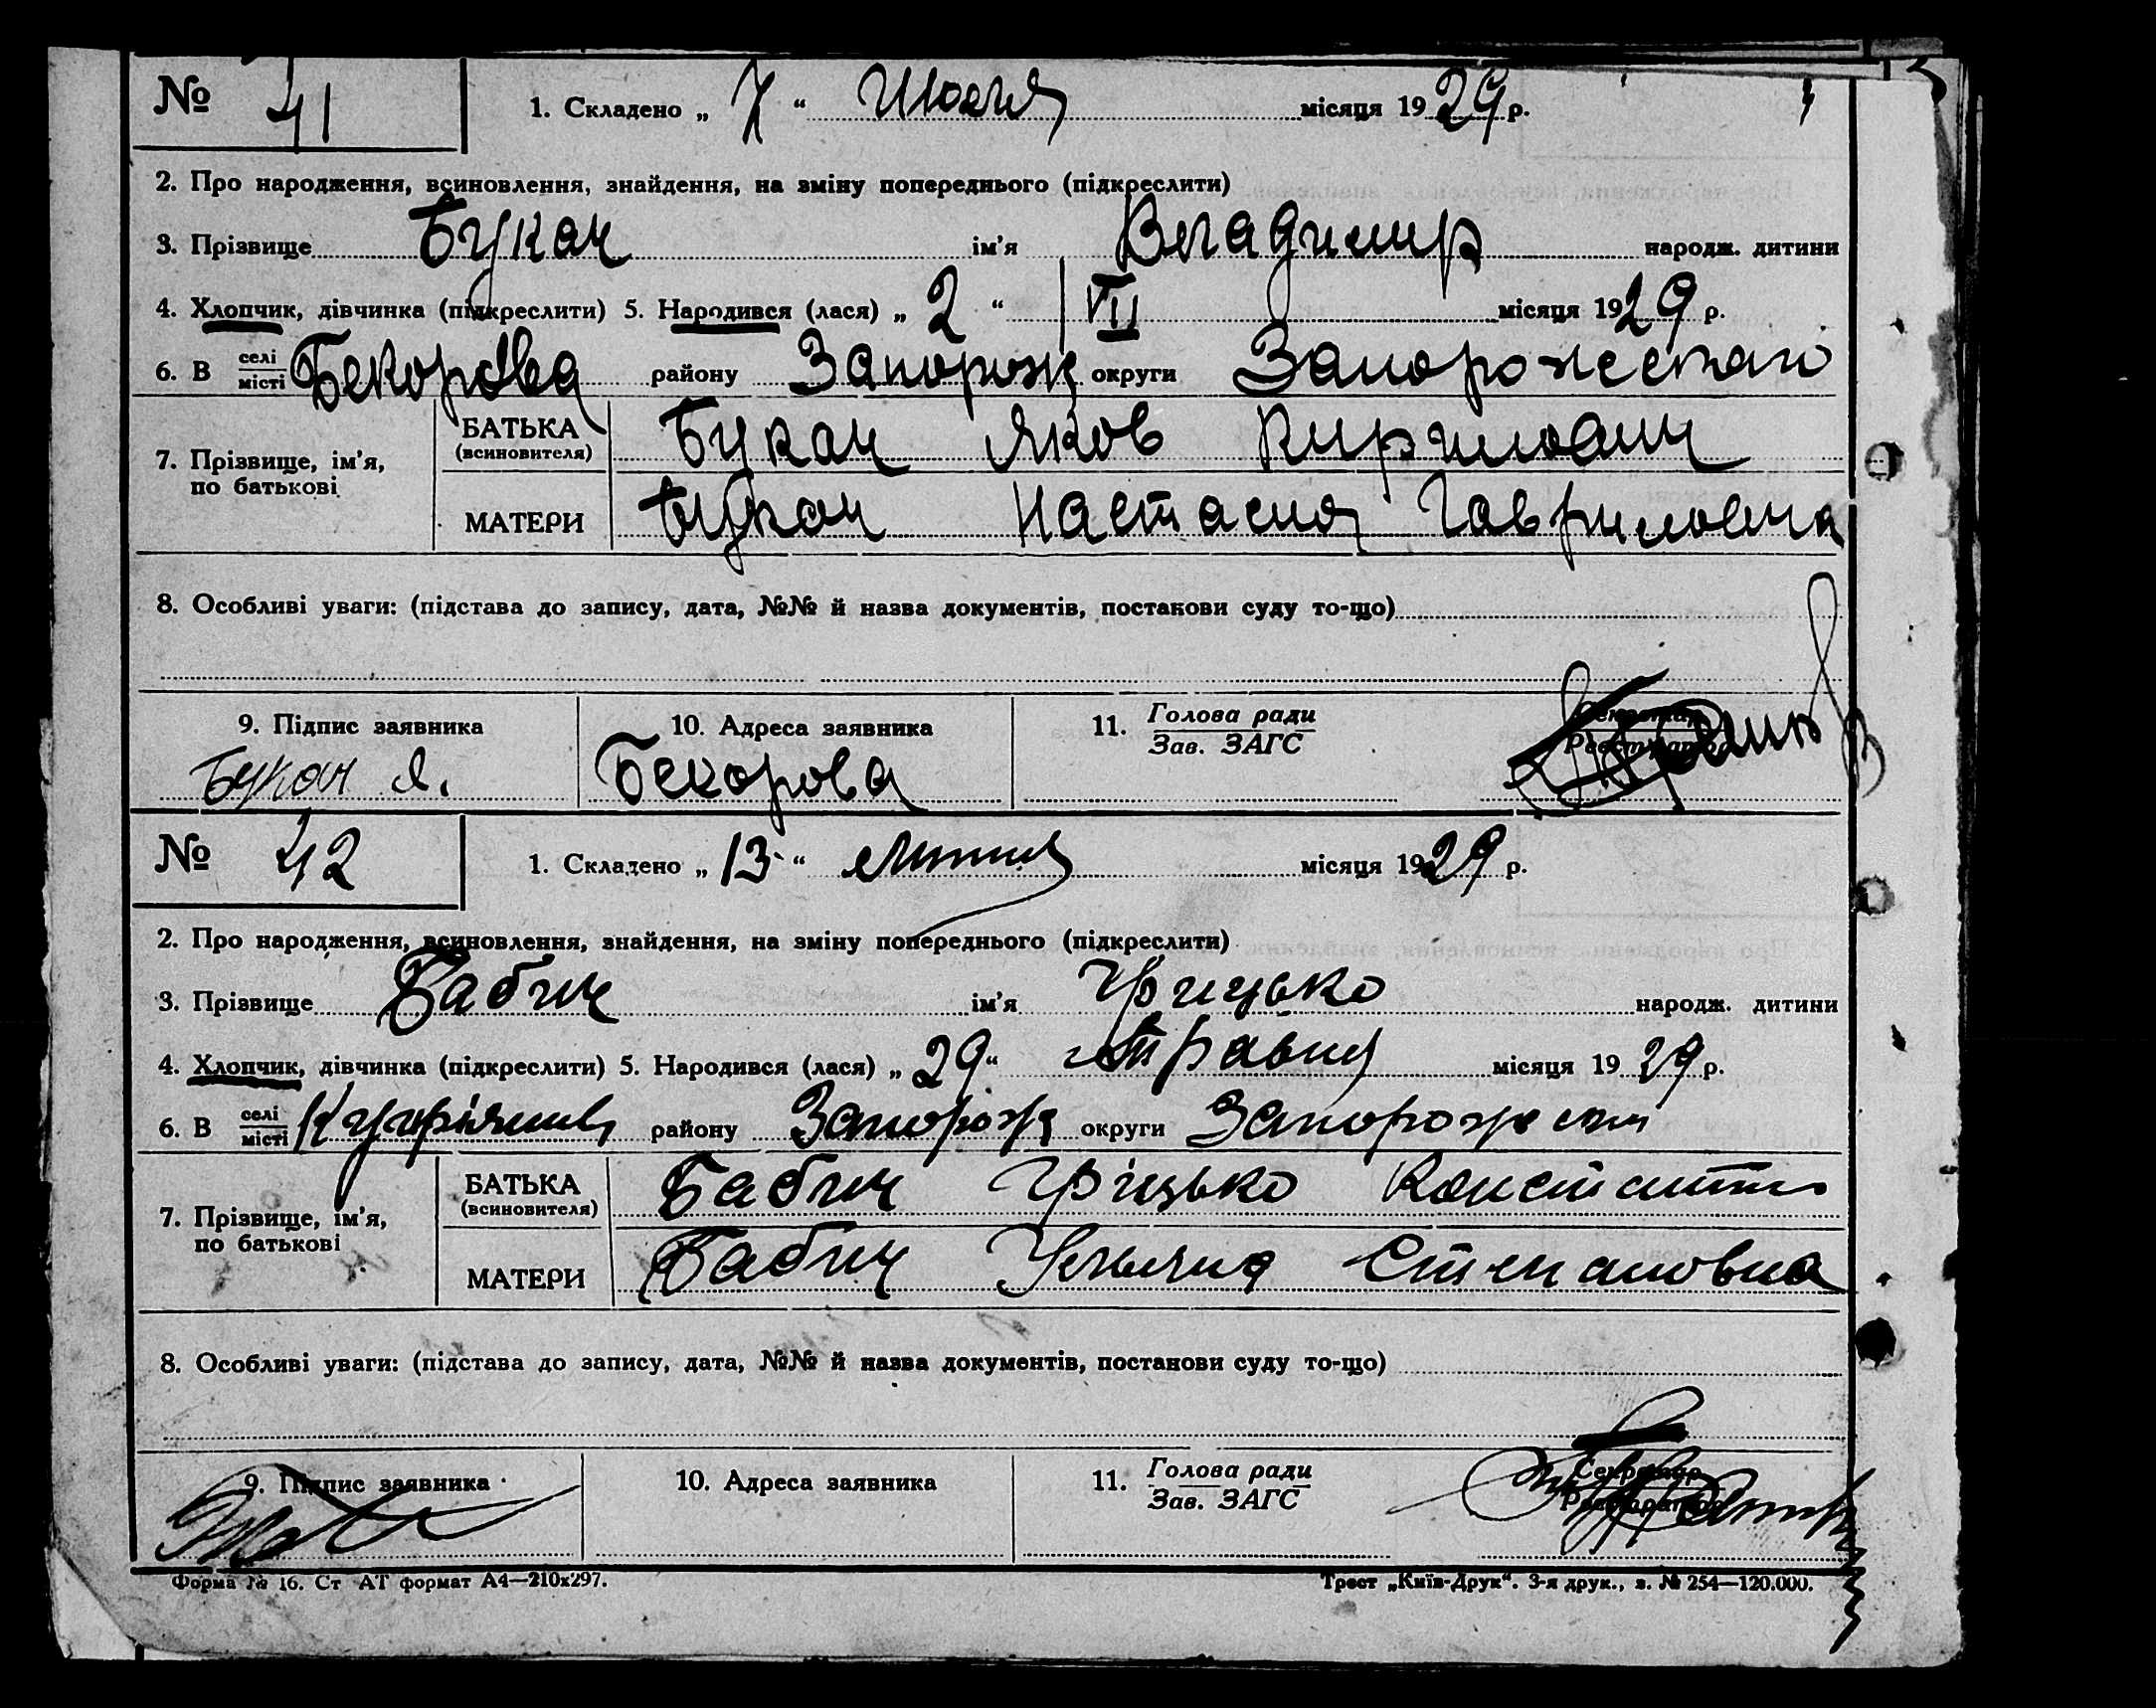 № 41 1. Складено „ 7 “ Июля місяця 1929 р.
2. Про народження, всиновлення, знайдення, на зміну попереднього (підкреслити)
3. Прізвище Букач ім'я Владимир народж. дитини
4. Хлопчик, дівчинка (підкреслити) 5. Народився (лася) „ 2 “ VII місяця 1929 р.
6. В селі місті Бекорова району Запорож округи Запорожского
7. Прізвище, ім'я, по батькові БАТЬКА (всиновителя) Букач Яков Кирилович
МАТЕРИ Букач Настасия Гавриловна
8. Особливі уваги: (підстава до запису, дата, №№ й назва документів, постанови суду то-що)
9. Підпис заявника 10. Адреса заявника 11. Голова ради Зав. ЗАГС Секретар Реєстратор
Букач Я. Бекорова
№ 42 1. Складено „ 13 “ Липня місяця 1929 р.
2. Про народження, всиновлення, знайдення, на зміну попереднього (підкреслити)
3. Прізвище Бабич ім'я Грицько народж. дитини
4. Хлопчик, дівчинка (підкреслити) 5. Народився (лася) „ 29 “ Травня місяця 1929 р.
6. В селі місті району Запорож округи
7. Прізвище, ім'я, по батькові БАТЬКА (всиновителя) Бабич Гріцько
МАТЕРИ Бабич Ульяна Степановна
8. Особливі уваги: (підстава до запису, дата, №№ й назва документів, постанови суду то-що)
9. Підпис заявника 10. Адреса заявника 11. Голова ради Зав. ЗАГС Секретар Реєстратор
Форма № 16. Ст АТ формат А4—210х297. Трест „Київ-Друк“. 3-я друк., з. № 254—120.000.